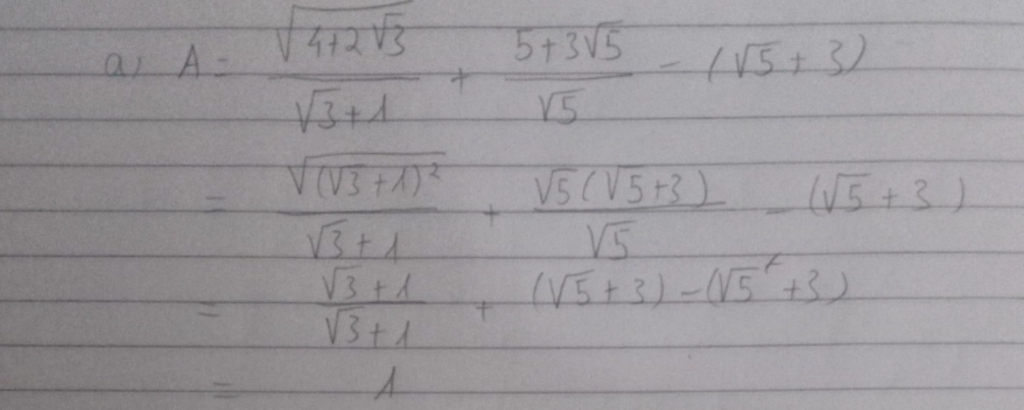 a) A = \frac{\sqrt{4+2\sqrt{3}}}{\sqrt{3}+1} + \frac{5+3\sqrt{5}}{\sqrt{5}} - (\sqrt{5}+3)
= \frac{\sqrt{(\sqrt{3}+1)^2}}{\sqrt{3}+1} + \frac{\sqrt{5}(\sqrt{5}+3)}{\sqrt{5}} - (\sqrt{5}+3)
= \frac{\sqrt{3}+1}{\sqrt{3}+1} + (\sqrt{5}+3) - (\sqrt{5}+3)
= 1